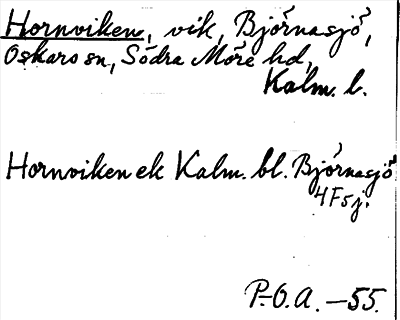 Hornviken, vik, Björnasjö,
Oskars sn, Södra Möre hd,
Kalm. l.
Hornviken ek Kalm. bl. Björnasjö
4F5j.
P.-O.A. -55.